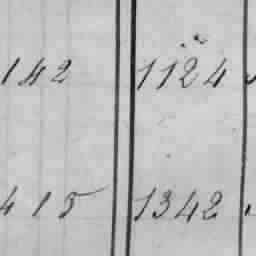 142 1124
415 1342